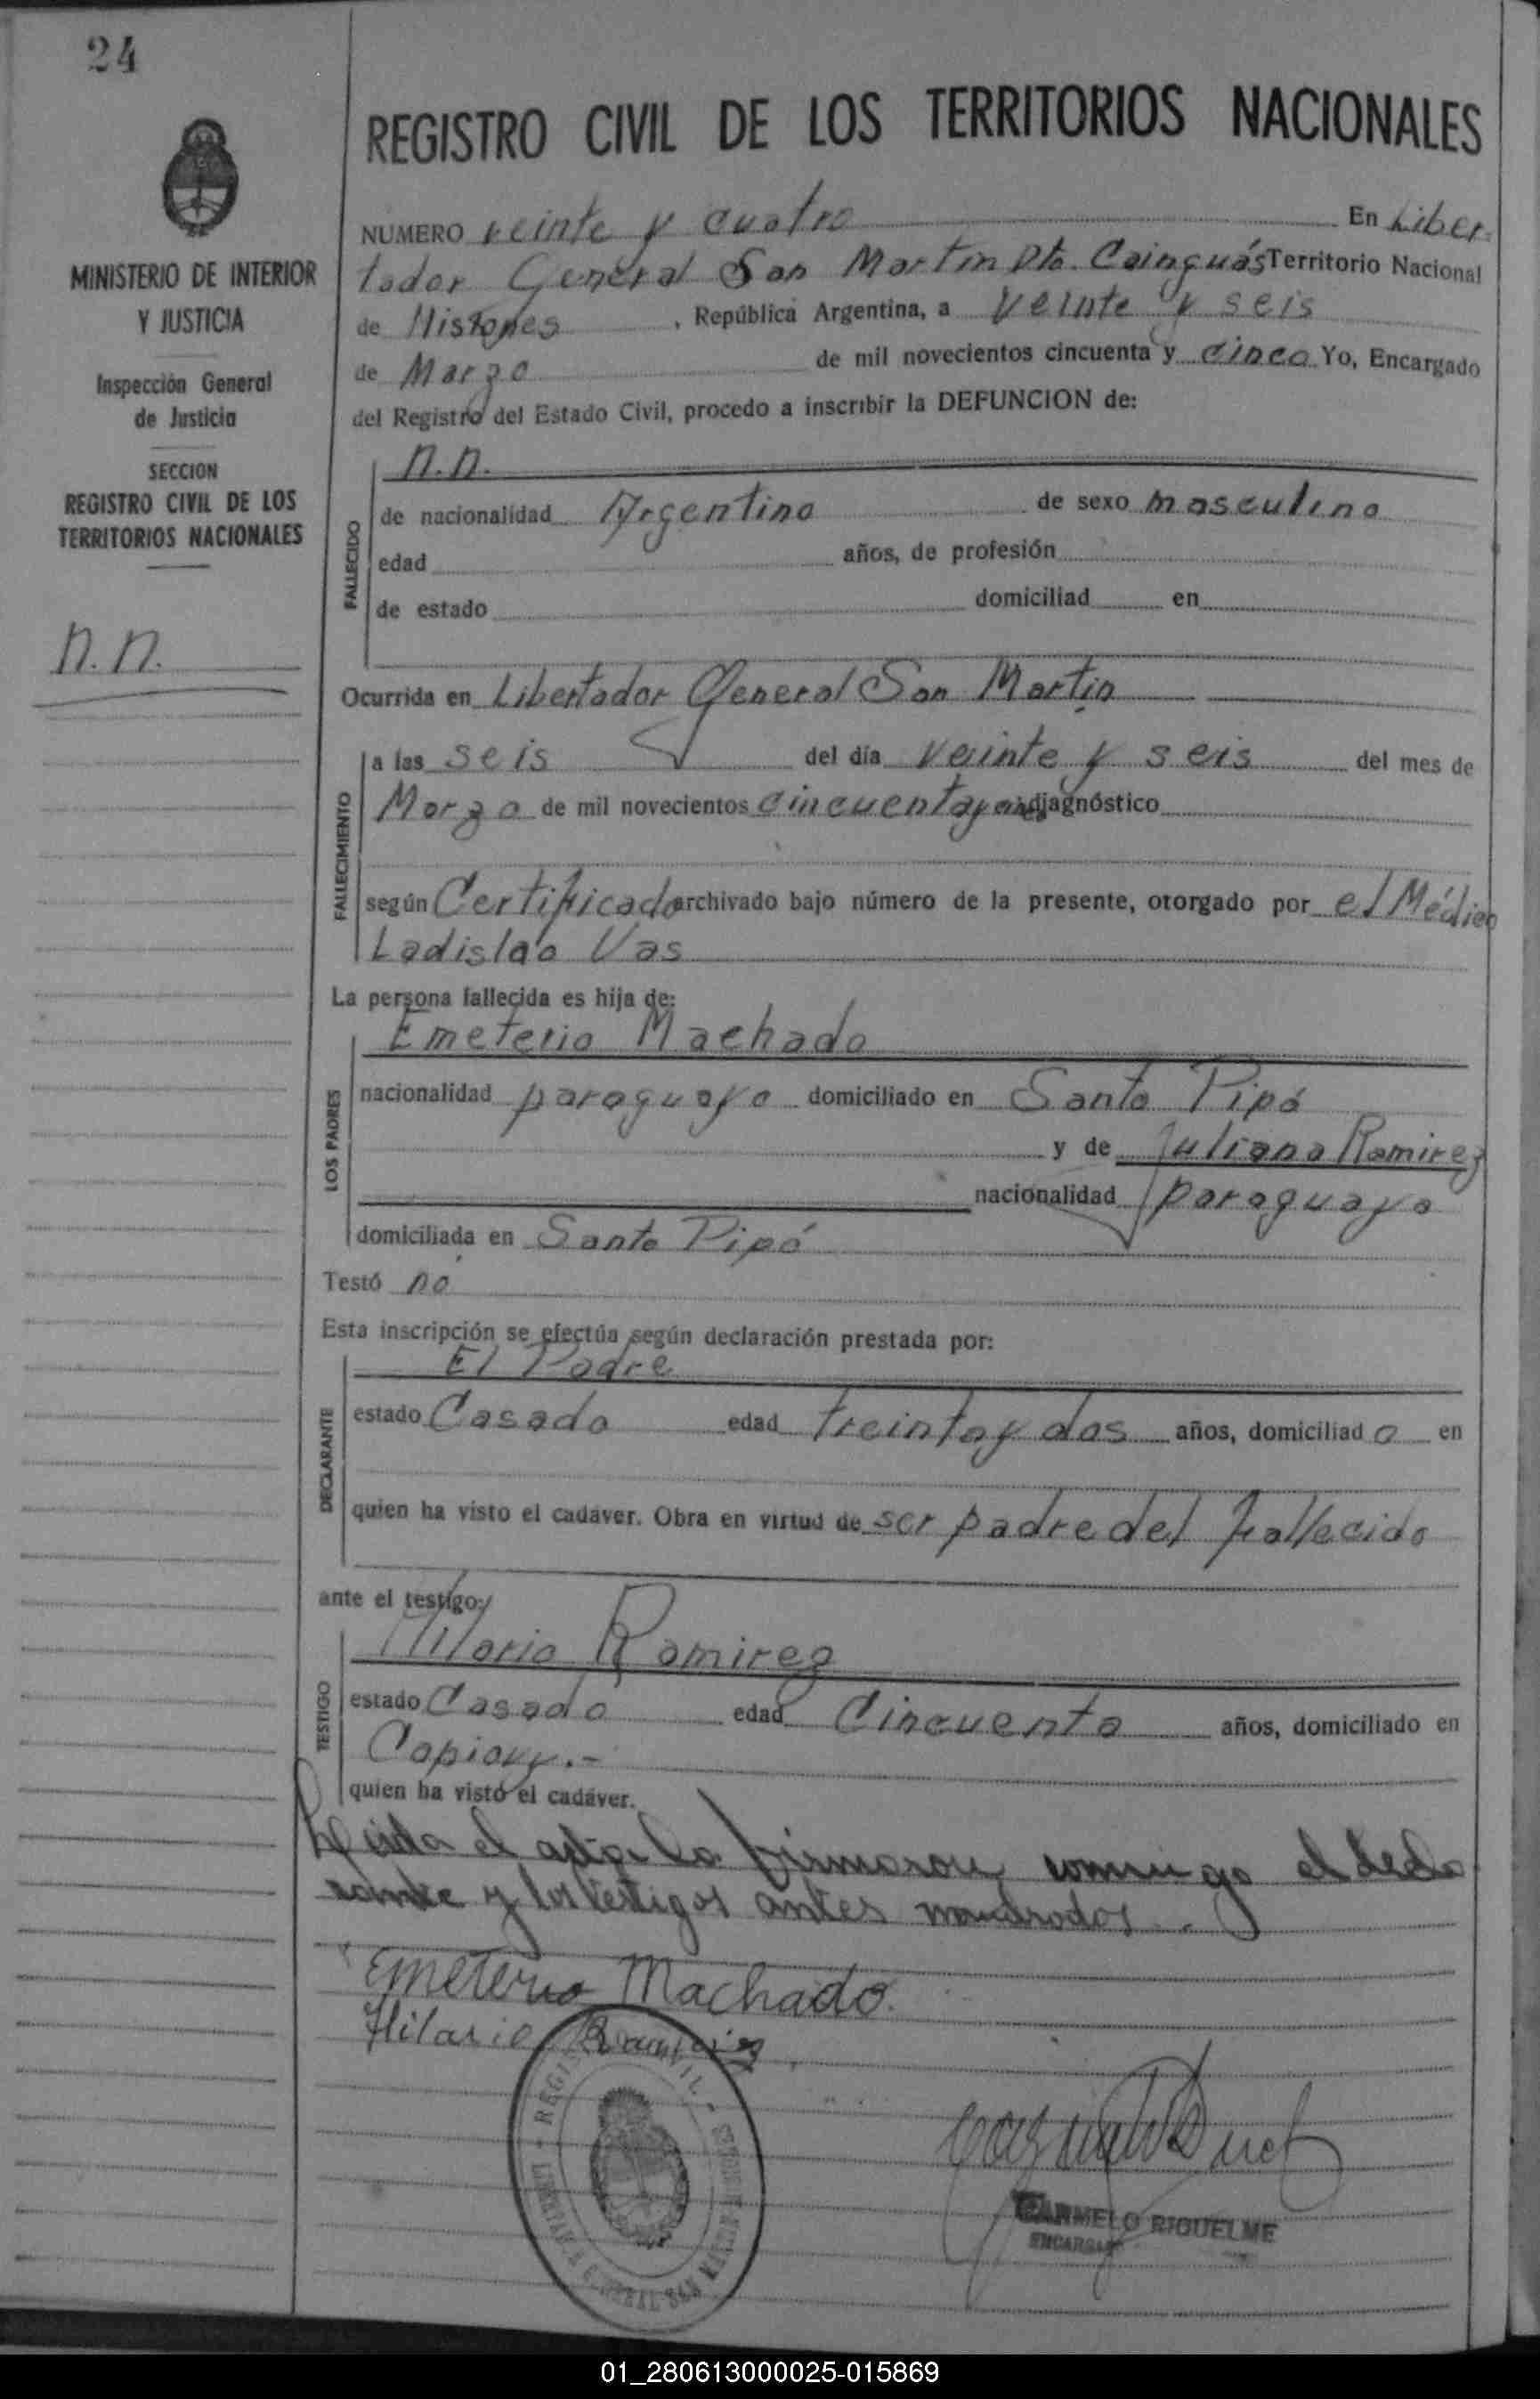 24
REGISTRO CIVIL DE LOS TERRITORIOS NACIONALES
MINISTERIO DE INTERIOR
Y JUSTICIA
Inspección General
de Justicia
SECCION
REGISTRO CIVIL DE LOS
TERRITORIOS NACIONALES
n.n.
NUMERO veinte y cuatro En Liber-
tador General San Martin Dto. Cainguás Territorio Nacional
de Misiones, República Argentina, a veinte y seis
de Marzo de mil novecientos cincuenta y cinco Yo, Encargado
del Registro del Estado Civil, procedo a inscribir la DEFUNCION de:
FALLECIDO
n.n.
de nacionalidad Argentino de sexo masculino
edad años, de profesión
de estado domiciliad en
Ocurrida en Libertador General San Martin
FALLECIMIENTO
a las seis del día veinte y seis del mes de
Marzo de mil novecientos cincuenta y diagnóstico
según Certificado archivado bajo número de la presente, otorgado por el Médico
Ladislao Vas
La persona fallecida es hija de:
LOS PADRES
Emeterio Machado
nacionalidad paraguayo domiciliado en Santo Pipó
y de Juliana Ramirez
nacionalidad paraguaya
domiciliada en Santo Pipó
Testó no
Esta inscripción se efectúa según declaración prestada por:
DECLARANTE
El Padre
estado Casado edad treinta y dos años, domiciliado en
quien ha visto el cadáver. Obra en virtud de ser padre del fallecido
ante el testigo:
TESTIGO
Hilario Ramirez
estado Casado edad Cincuenta años, domiciliado en
Capiovy.-
quien ha visto el cadáver.
Leida el acta la firmaron conmigo el decla
rante y los testigos antes nombrados.
Emeterio Machado.
Hilario Ramirez
CARMELO RIQUELME
ENCARGADO
01_280613000025-015869